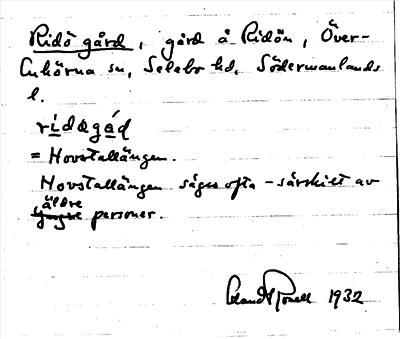 Ridö gård, gård å Ridön, Över-
Enhörna sn, Selebo hd, Södermanlands
l.
ridøgád
= Hovstallängen.
Hovstallängen säges ofta – särskilt av
äldre
yngre personer.
1932